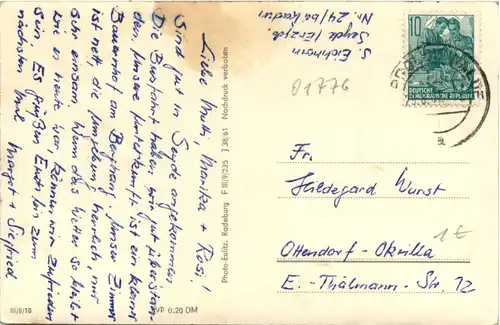 Liebe Mutti, Monika + Rosi!
Sind gut in Seyde angekommen
Die Busfahrt haben wir gut überstan-
den. Unsere Unterkunft ist ein klein
Bauernhof am Berghang. Unser Zimmer
ist nett die Umgebung herrlich, nur
sehr einsam. Wenn das Wetter so bleibt
wie heute hier, können wir zufrieden
sein. Es grüßen Euch bis zum
nächsten Mal Margot + Siegfried
III/8/19
VP 0.20 DM
Photo-Eulitz, Radeburg F III/9/235 J 38/61 Nachdruck verboten
S. Eichhorn
Seyde
Nr. 24/
01776
10
DEUTSCHE
DEMOKRATISCHE REPUBLIK
a
Fr.
Hildegard Wurst
1 €
Ottendorf-Okrilla
E.-Thälmann-Str. 12